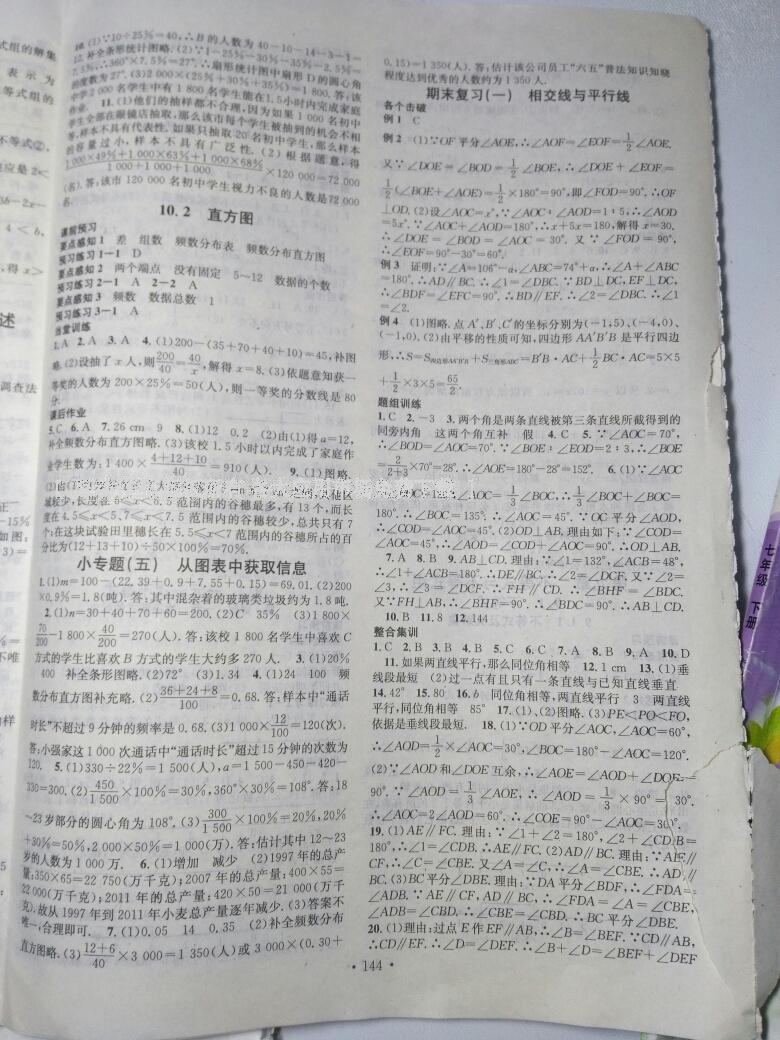 10.(1)∵10÷25%=40,∴B的人数为40-10-14-3-1=
12.补全条形统计图略.(2)∵1-25%-30%-35%-2.5%=
7.5%,360°×7.5%=27°.∴扇形统计图中扇形D的圆心角
的度数为27°.(3)2 000×(25%+30%+35%)=1 800.答:该
中学2 000名学生中有1 800名学生能在1.5小时内完成家庭
作业. 11.(1)他们的抽样都不合理.因为如果1 000名初中
学生全部在眼镜店抽取,那么该市每个学生被抽到的机会不相
等,样本不具有代表性.如果只抽取20名初中学生,那么样本
的容量过小,样本不具有广泛性.(2)根据题意,得
1 000×49%+1 000×63%+1 000×68%/1 000+1 000+1 000×120 000=72 000
(名).答:该市120 000名初中学生视力不良的人数是72 000
名.
10.2 直方图
课前预习
要点感知1 差 组数 频数分布表 频数分布直方图
预习练习1-1 D
要点感知2 两个端点 没有固定 5~12 数据的个数
预习练习2-1 A 2-2 A
要点感知3 频数 数据总数 1
预习练习3-1 A
当堂训练
1.A 2.A 3.A 4.(1)200-(35+70+40+10)=45,补图
略.(2)设抽了x人,则200/40=40/x,解得x=8.(3)依题意知获一
等奖的人数为200×25%=50(人),则一等奖的分数线是80
分.
课后作业
5.C 6.A 7.26 cm 9 8.(1)12 0.2 (2)由(1)得a=12,
补全频数分布直方图略.(3)该校1.5小时以内完成了家庭作
业学生数为:1 400×4+12+10/40=910(人). 9.(1)图略.
城较少,长度在6≤x<6.5范围内的谷穗最多,有13个,而长
度在4.5≤x<5、7≤x<7.5范围内的谷穗较少,总共只有7
个;在这块试验田里穗长在5.5≤x<7范围内谷穗所占的百
分比为(12+13+10)÷50×100%=70%.
小专题(五) 从图表中获取信息
1.(1)m=100-(22.39+0.9+7.55+0.15)=69.01.(2)200
×0.9%=1.8(吨).答:其中混杂着的玻璃类垃圾约为1.8吨.
2.(1)m=30+40+70+60=200.(2)C 35% (3)1 800×
70/200-1 800×40/200=270(人).答:该校1 800名学生中喜欢C
方式的学生比喜欢B方式的学生大约多270人. 3.(1)20%
400 补全条形图略.(2)72° (3)1.34 4.(1)24 100 频
数分布直方图补充略.(2)36+24+8/100=0.68.答:样本中“通话
时长”不超过9分钟的频率是0.68.(3)1 000×12/100=120(次).
答:小强家这1 000次通话中“通话时长”超过15分钟的次数为
120. 5.(1)330÷22%=1 500(人),a=1 500-450-420-
330=300.(2)450/1 500×100%=30%,360°×30%=108°.答:18
~23岁部分的圆心角为108°.(3)300/1 500×100%=20%,20%
+30%=50%,2 000×50%=1 000(万).答:估计其中12~23
岁的人数为1 000万. 6.(1)增加 减少 (2)1997年的总产
量:350×65=22 750(万千克);2007年的总产量:400×55=
22 000(万千克);2011年的总产量:420×50=21 000(万千
克).故从1997年到2011年小麦总产量逐年减少.(3)答案不
唯一,合理即可. 7.(1)0.05 14 0.35 (2)补全频数分布
直方图略.(3)12+6/40×3 000=1 350(人)或3 000×(0.30+
0.15)=1 350(人).答:估计该公司员工“六五”普法知识知晓
程度达到优秀的人数约为1 350人.
期末复习(一) 相交线与平行线
各个击破
例1 C
例2 (1)∵OF平分∠AOE,∴∠AOF=∠EOF=1/2∠AOE.
又∵∠DOE=∠BOD=1/2∠BOE,∴∠DOE+∠EOF=
1/2(∠BOE+∠AOE)=1/2×180°=90°,即∠FOD=90°.∴OF
⊥OD.(2)设∠AOC=x°,∵∠AOC∶∠AOD=1∶5,∴∠AOD
=5x°.∵∠AOC+∠AOD=180°,∴x+5x=180,解得x=30.
∴∠DOE=∠BOD=∠AOC=30°.又∵∠FOD=90°,
∴∠EOF=90°-30°=60°.
例3 证明:∵∠A=106°-α,∠ABC=74°+α,∴∠A+∠ABC
=180°.∴AD∥BC.∴∠1=∠DBC.∵BD⊥DC,EF⊥DC,
∴∠BDF=∠EFC=90°.∴BD∥EF.∴∠2=∠DBC.∴∠1
=∠2.
例4 (1)图略.点A′、B′、C′的坐标分别为(-1,5)、(-4,0)、
(-1,0).(2)由平移的性质可知,四边形AA′B′B是平行四边
形,∴S=S四边形AA′B′B+S三角形ABC=B′B·AC+1/2BC·AC=5×5
+1/2×3×5=65/2.
题组训练
1.C 2.-3 3.两个角是两条直线被第三条直线所截得到的
同旁内角 这两个角互补 假 4.C 5.∵∠AOC=70°,
∴∠BOD=∠AOC=70°.∵∠BOE∶∠EOD=2∶3,∴∠BOE=
2/2+3×70°=28°.∴∠AOE=180°-28°=152°. 6.(1)∵∠AOC
=1/3∠BOC,∠AOC+∠BOC=
180°.∴∠BOC=135°.∴∠AOC=45°.∵OC平分∠AOD,
∴∠COD=∠AOC=45°.(2)OD⊥AB.理由如下:∵∠COD=
∠AOC=45°,∴∠AOD=∠COD+∠AOC=90°.∴OD⊥AB.
7.A 8.B 9.AB⊥CD.理由:∵∠1=132°,∠ACB=48°,
∴∠1+∠ACB=180°.∴DE∥BC.∴∠2=∠DCF.又∵∠2=
∠3,∴∠3=∠DCF.∴FH∥CD.∴∠BHF=∠BDC.
又∵FH⊥AB,∴∠BHF=90°.∴∠BDC=90°.∴AB⊥CD.
10.B 11.8 12.144
整合集训
1.C 2.B 3.B 4.B 5.C 6.C 7.A 8.B 9.A 10.D
11.如果两直线平行,那么同位角相等 12.1 cm 13.(1)垂
线段最短 (2)过一点有且只有一条直线与已知直线垂直
14.42° 15.80 16.b 同位角相等,两直线平行 3 两直线
平行,同位角相等 85° 17.(1)、(2)图略.(3)PE<PO<FO,
依据是垂线段最短. 18.(1)∵OD平分∠AOC,∠AOC=60°,
∴∠AOD=1/2×∠AOC=30°,∠BOC=180°-∠AOC=120°.
(2)∵∠AOD和∠DOE互余,∴∠AOE=∠AOD+∠DOE=
90°.∵∠AOD=1/3∠AOE,∴∠AOD=1/3×90°=30°.
∴∠AOC=2∠AOD=60°.∴∠COE=90°-∠AOC=30°.
19.(1)AE∥FC.理由:∵∠1+∠2=180°,∠2+∠CDB=
180°,∴∠1=∠CDB.∴AE∥FC.(2)AD∥BC.理由:∵AE∥
CF,∴∠C=∠CBE.又∠A=∠C,∴∠A=∠CBE.∴AD∥
BC.(3)BC平分∠DBE.理由:∵DA平分∠BDF,∴∠FDA=
∠ADB.∵AE∥CF,AD∥BC,∴∠FDA=∠A=∠CBE,
∠ADB=∠CBD.∴∠CBE=∠CBD.∴BC平分∠DBE.
20.(1)理由:过点E作EF∥AB,∴∠B=∠BEF.∵CD∥AB,
∴CD∥EF.∴∠D=∠DEF.∴∠B+∠D=∠BEF+∠DEF
· 144 ·
七年级 下册